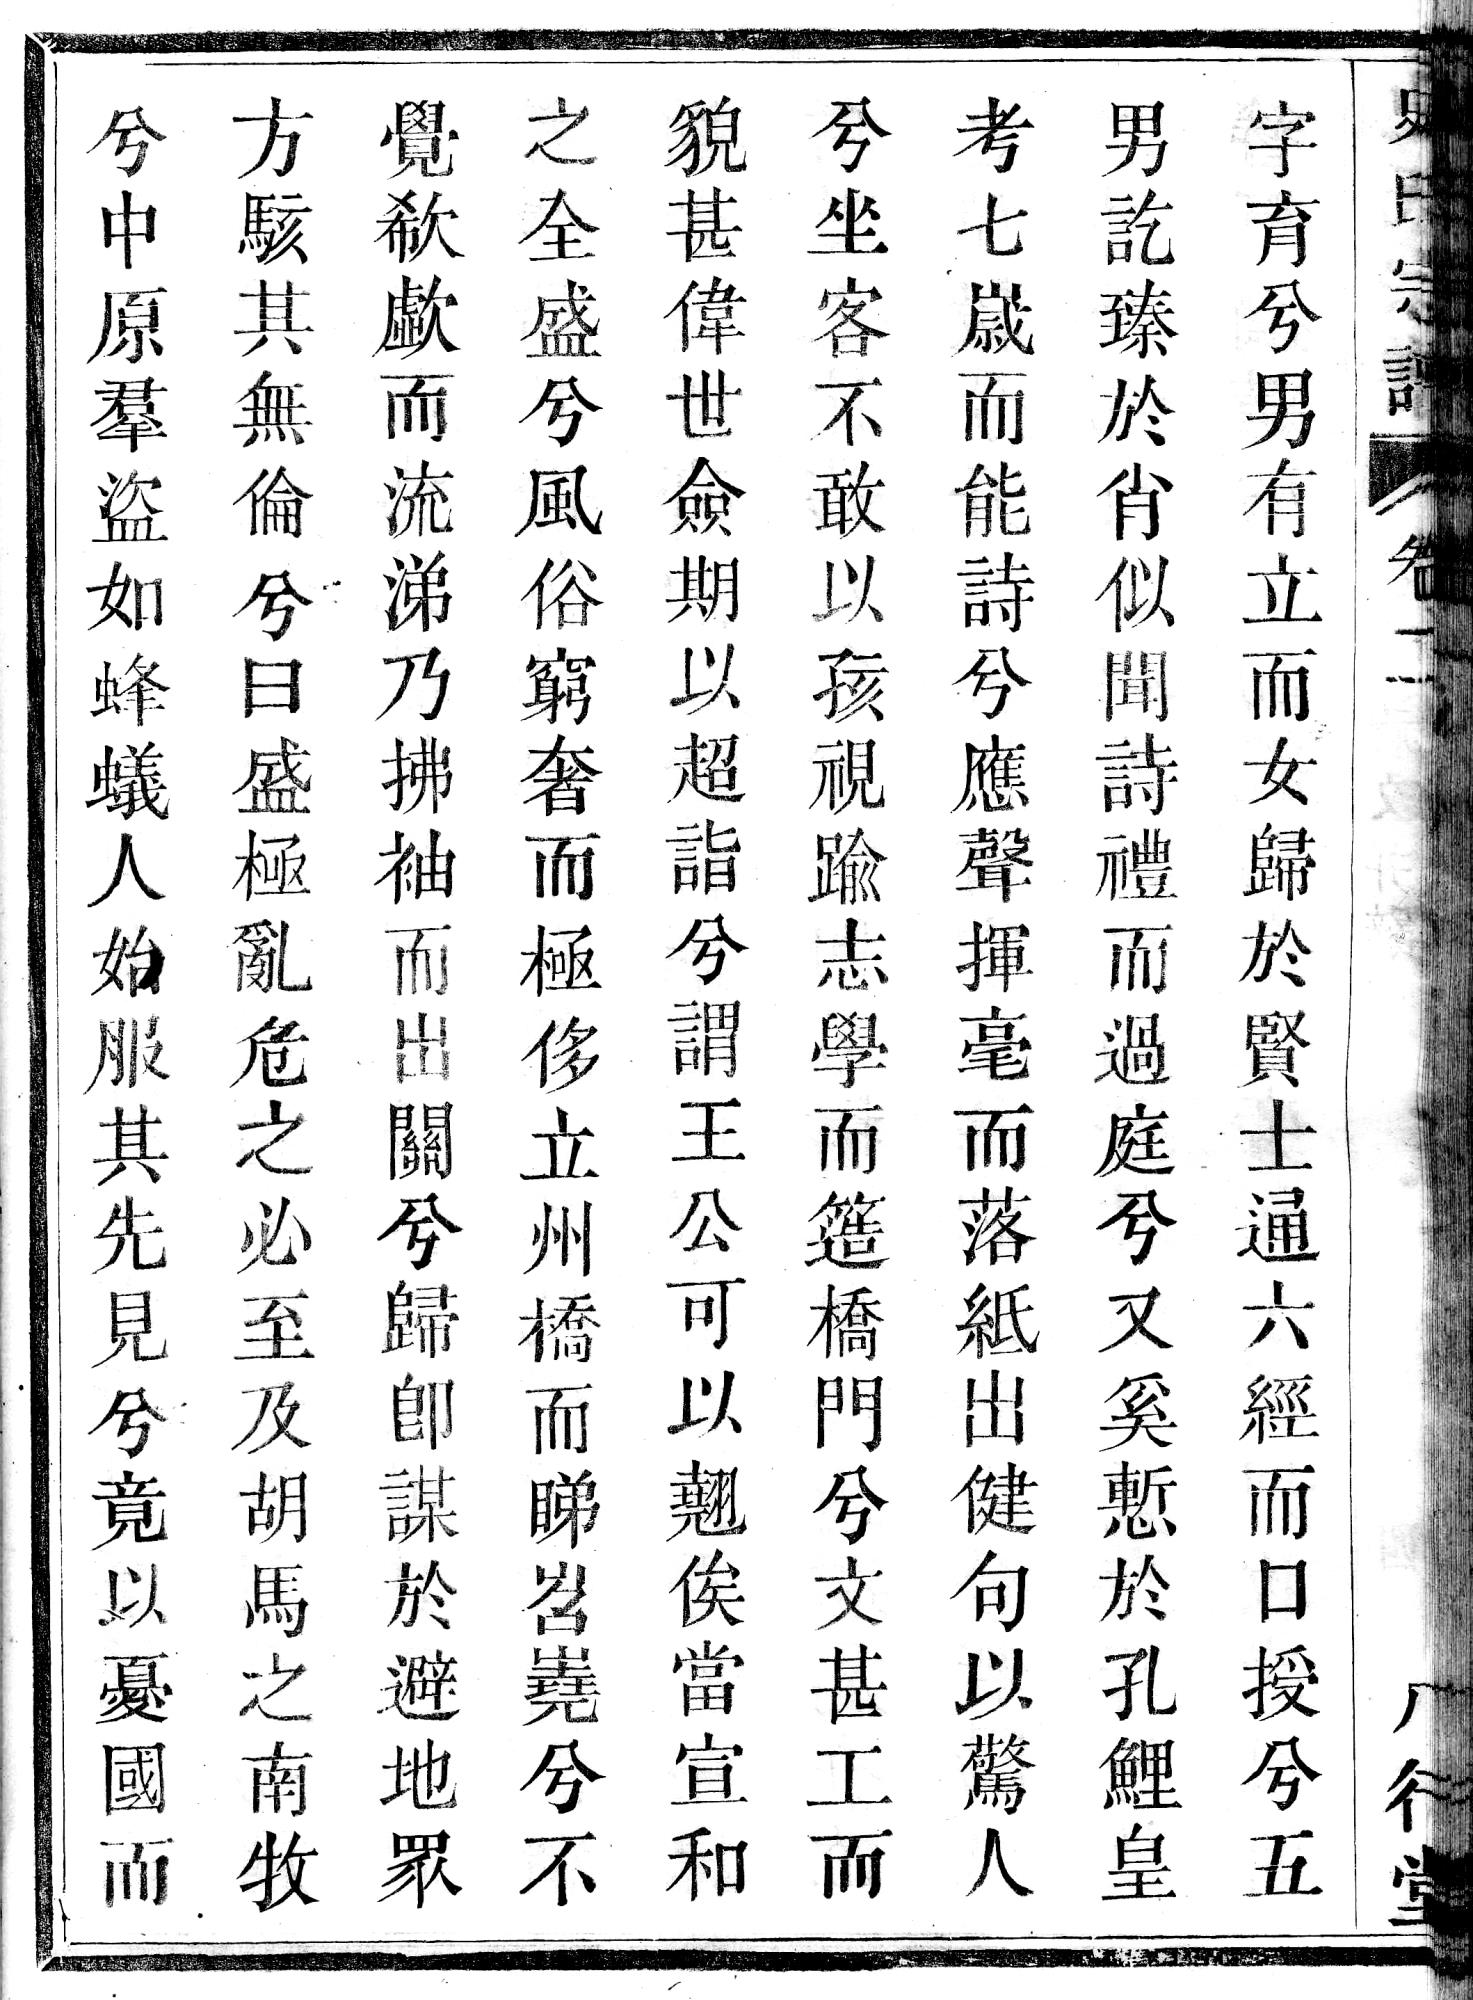 史氏宗譜 卷二 八行堂
字育兮男有立而女歸於賢士通六經而口授兮五
男訖臻於肖似聞詩禮而過庭兮又奚慙於孔鯉皇
考七歲而能詩兮應聲揮毫而落紙出健句以驚人
兮坐客不敢以孩視踰志學而簉橋門兮文甚工而
貌甚偉世僉期以超詣兮謂王公可以翹俟當宣和
之全盛兮風俗窮奢而極侈立州橋而睇岧嶤兮不
覺欷歔而流涕乃拂袖而出關兮歸卽謀於避地眾
方駭其無倫兮曰盛極亂危之必至及胡馬之南牧
兮中原羣盜如蜂蟻人始服其先見兮竟以憂國而